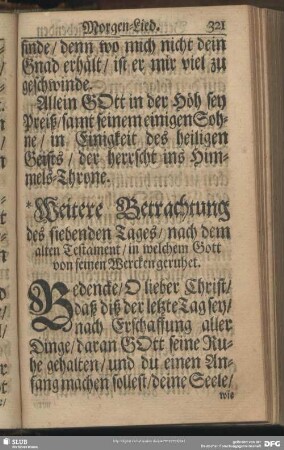 Morgen-Lied. 321
finde/ denn wo mich nicht dein
Gnad erhält/ ist er mir viel zu
geschwinde.
Allein GOtt in der Höh sey
Preiß/ samt seinem einigen Soh-
ne/ in Einigkeit des heiligen
Geists/ der herrscht ins Him-
mels-Throne.
*Weitere Betrachtung
des siebenden Tages/ nach dem
alten Testament/ in welchem Gott
von seinen Wercken geruhet.
Bedencke/ O lieber Christ/
daß diß der letzte Tag sey/
nach Erschaffung aller
Dinge/ daran GOtt seine Ru-
he gehalten/ und du einen An-
fang machen sollest/ deine Seele/
wie
SLUB
DFG